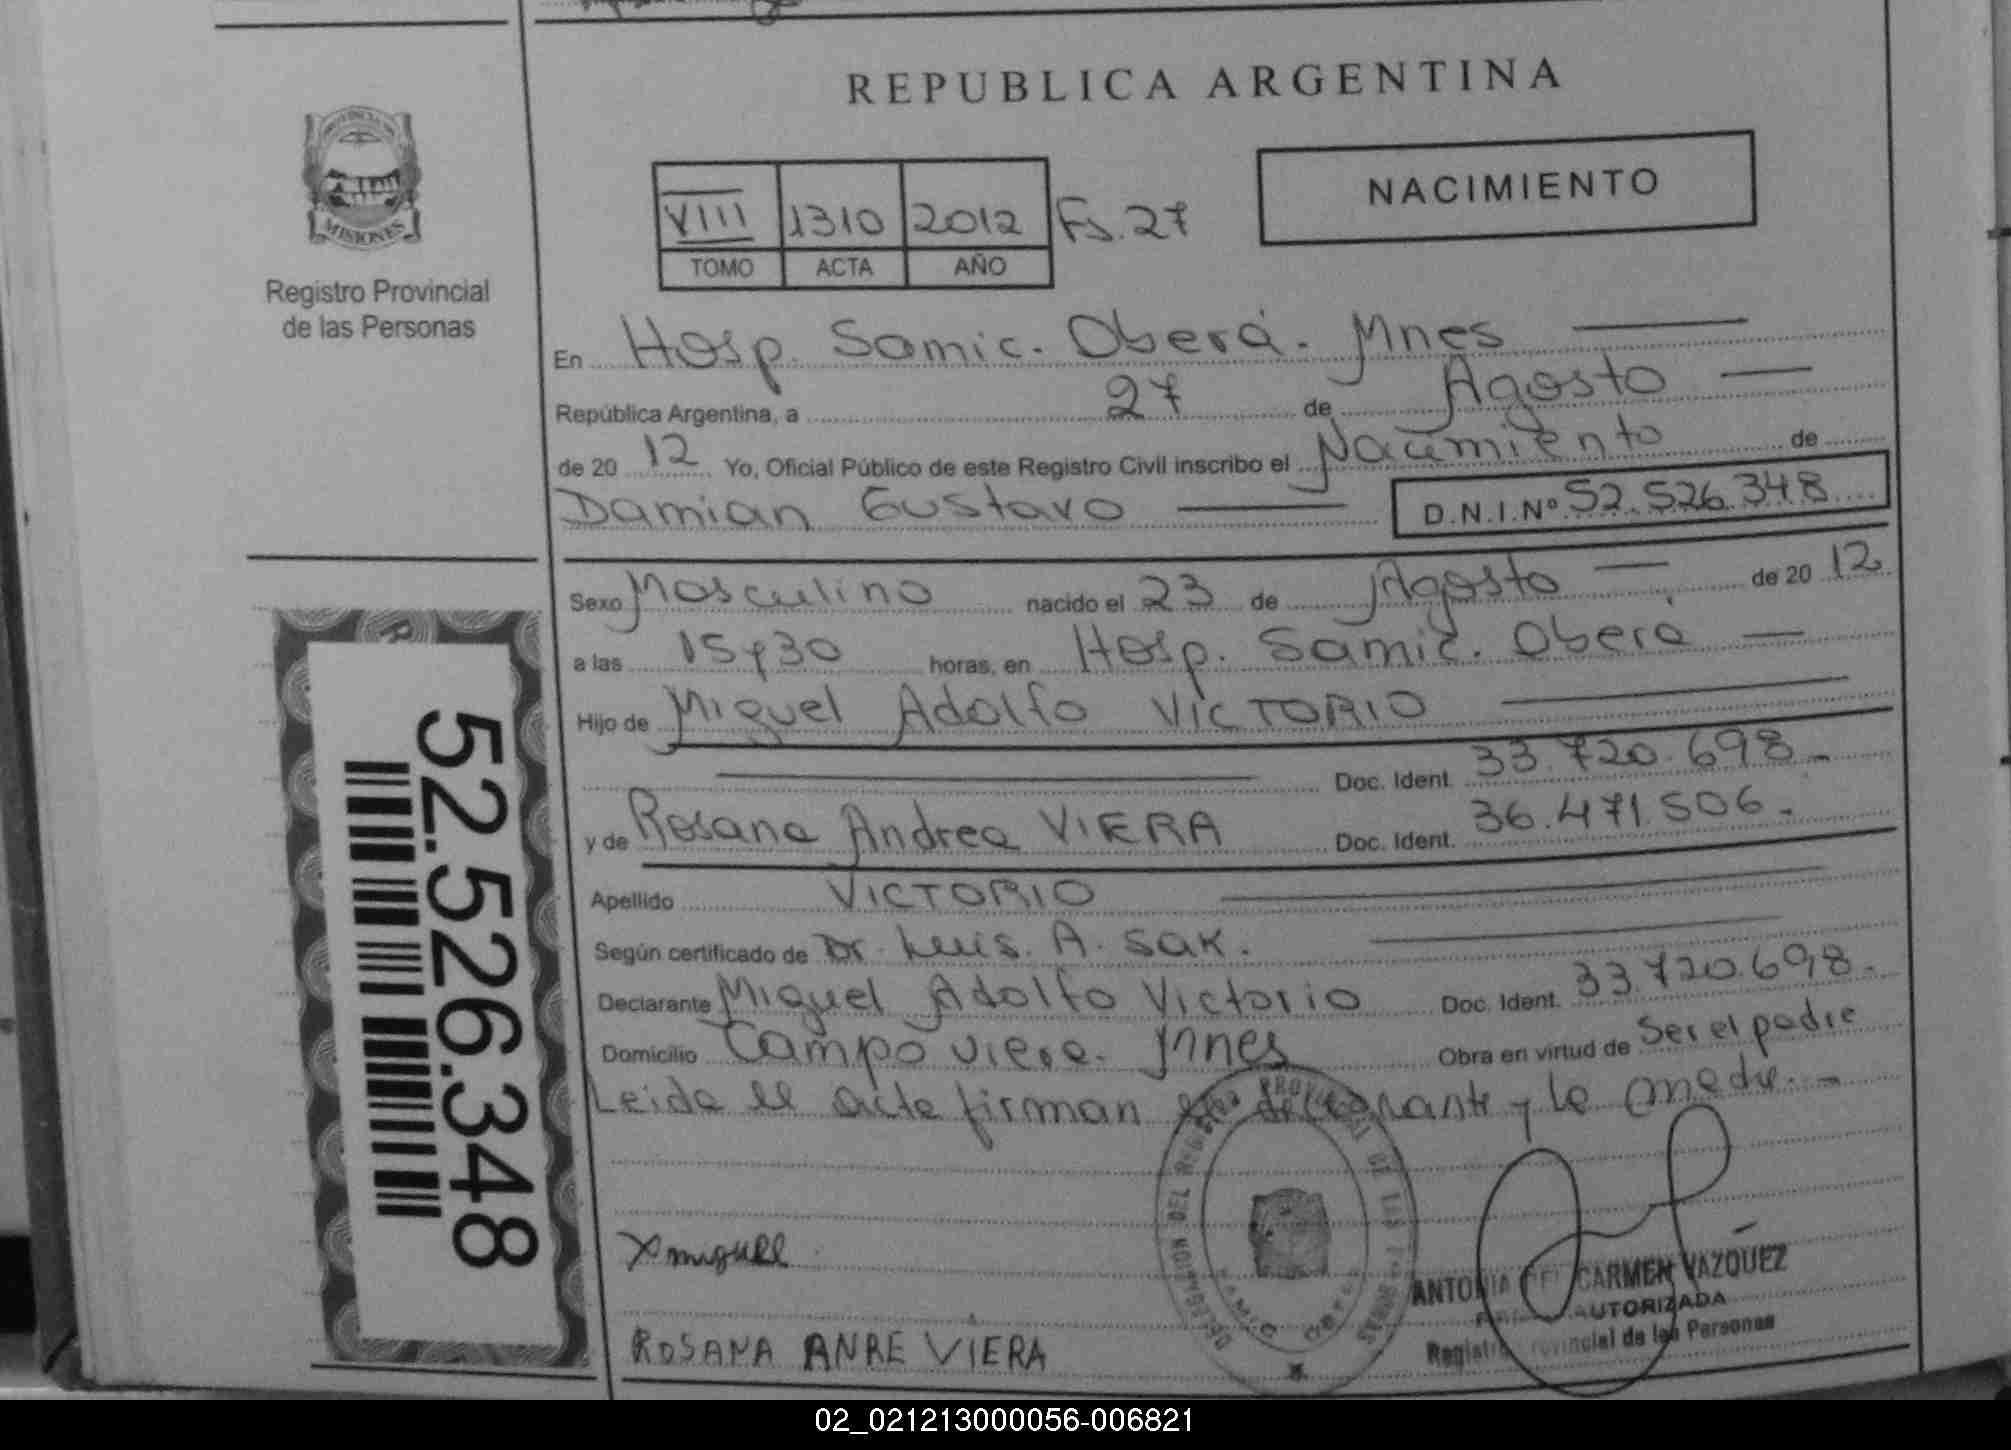 REPUBLICA ARGENTINA
PROVINCIA DE
MISIONES
Registro Provincial
de las Personas
NACIMIENTO
VIII 1310 2012 Fs. 27
TOMO ACTA AÑO
En Hosp. Samic. Oberá. Mnes
República Argentina, a 27 de Agosto
de 20 12 Yo, Oficial Público de este Registro Civil inscribo el Nacimiento de
Damian Gustavo D.N.I.Nº 52.526.348
Sexo Masculino nacido el 23 de Agosto de 20 12
a las 15y30 horas, en Hosp. Samic. Oberá
Hijo de Miguel Adolfo VICTORIO
Doc. Ident. 33.720.698.-
y de Rosana Andrea VIERA Doc. Ident. 36.471.506.-
Apellido VICTORIO
Según certificado de Dr. Luis. A. Sak.
Declarante Miguel Adolfo Victorio Doc. Ident. 33.720.698.-
Domicilio Campo Viera. Mnes Obra en virtud de Ser el padre
Leida el acta firman el declarante y la madre.-
52.526.348
X miguel
ROSANA ANRE VIERA
DELEGACION DEL REGISTRO PROVINCIAL DE LAS PERSONAS
SAMIC OBERA
ANTONIA DEL CARMEN VAZQUEZ
AUTORIZADA
Registro Provincial de las Personas
02_021213000056-006821